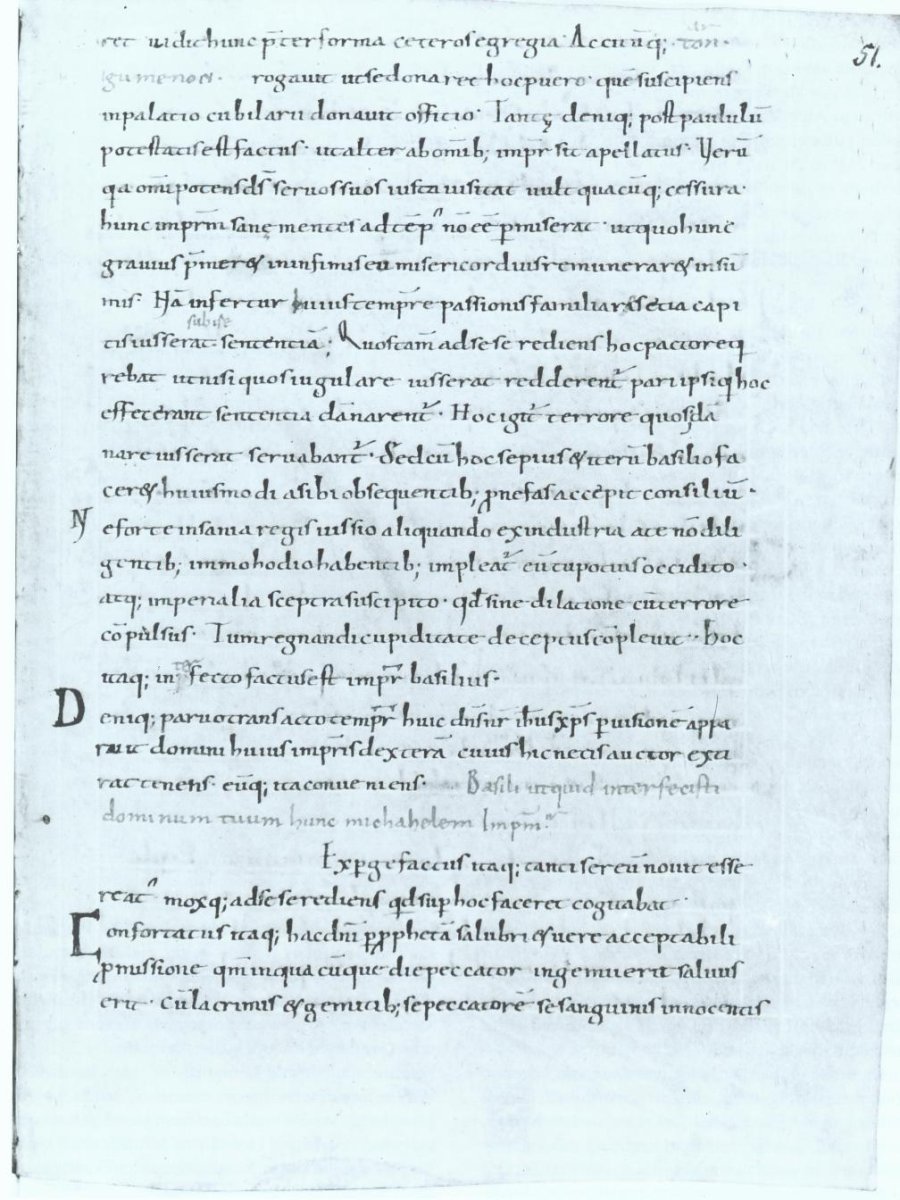 ret uidit hunc p̄ter forma ceteros egregia. Accitūq;
51.
gumenoes. rogauit ut sedonaret hoc puero. quē suscipiens
inpalatio cubilarii donauit officio. Tantę deniq; post paululū
potestatis est factus. ut alter ab omib; impr̄ sit apellatus. Verū
qa omīpotens ds̄ seruos suos iusta uisitat uult quacūq; cessura.
hunc imprm̄ sanę mentes ad tēp nō eē p̄miserat. ut quo hunc
grauius p̄mer& in infimis eū misericordius remunerar& insū
mis. Nā infertur huius tempr̄e passionis familiares etia capi
subise
tis iusserat sententiā; Quos tam̄ ad se se rediens hoc pacto req
rebat ut nisi quos iugulare iusserat redderent̄ pari ipsi q hoc
effecerant sententia dānarent̄. Hoc igit̄ terrore quos dā
nare iusserat seruabant̄. Sed cū hoc sepius & iterū basilio fa
cer& huiusmodi a sibi obsequentib; ꝓ nefas accepit consiliū.
N
eforte insania regis iussio aliquando ex industria a te nō dili
gentib; immo hodio habentib; impleat̄ eū tu potius occidito.
atq; imperialia sceptra suscipito. qd̄ sine dilatione cū terrore
cōpulsus. Tum regnandi cupiditate deceptus cōpleuit. Hoc
itaq; interfecto factus est impr̄ basilius.
D
eniq; paruo transacto tempr̄ huic dn̄s nr̄ ih̄us xp̄s p uisionē appa
ruit domini huius impr̄is dexterā cuius hic necis auctor exti
rat tenens. eūq; ita conueniens. Basili ut quid interfecisti
dominum tuum hunc michahelem Imprm̄.
Expgefactus itaq; tanti sereū nouit esse
reat moxq; ad se se rediens qd̄ sup hoc faceret cogitabat
C
onfortatus itaq; hac dn̄i p ꝓphetā salubri & uere acceptabili
ꝓmissione qm̄ in quacūque die peccator ingemuerit saluus
erit. cū lacrimis & gemitib; se peccatorē se sanguinis innocentis